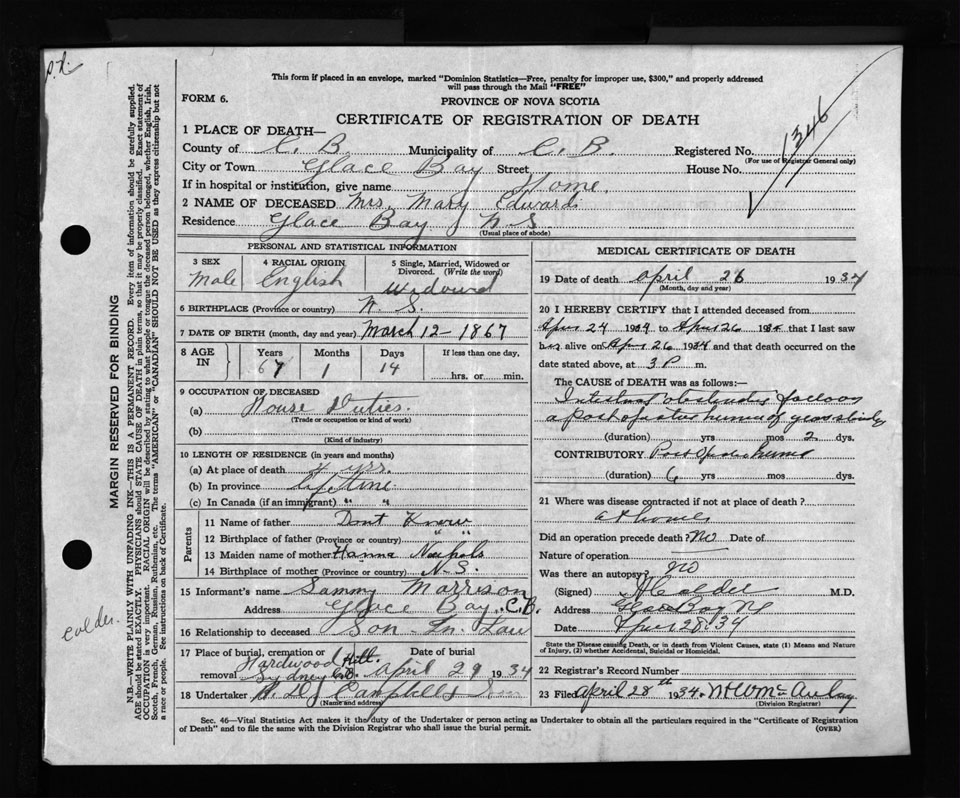 p.d.
This form if placed in an envelope, marked "Dominion Statistics—Free, penalty for improper use, $300," and properly addressed
will pass through the Mail "FREE"
FORM 6.
PROVINCE OF NOVA SCOTIA
CERTIFICATE OF REGISTRATION OF DEATH
1346
1 PLACE OF DEATH—
County of C. B. Municipality of C. B. Registered No.
(For use of Registrar General only)
City or Town Glace Bay Street House No.
If in hospital or institution, give name Home.
2 NAME OF DECEASED Mrs. Mary Edwards
Residence Glace Bay N S
(Usual place of abode)
PERSONAL AND STATISTICAL INFORMATION
3 SEX 4 RACIAL ORIGIN 5 Single, Married, Widowed or
Divorced. (Write the word)
Male English Widowed
6 BIRTHPLACE (Province or country) N. S.
7 DATE OF BIRTH (month, day and year) March 12- 1867
8 AGE IN Years Months Days If less than one day,
67 1 14 hrs. or min.
9 OCCUPATION OF DECEASED
(a) House Duties.
(Trade or occupation or kind of work)
(b)
(Kind of industry)
10 LENGTH OF RESIDENCE (in years and months)
(a) At place of death 4 yrs.
(b) In province lifetime
(c) In Canada (if an immigrant) " "
Parents
11 Name of father Dont Know
12 Birthplace of father (Province or country) " "
13 Maiden name of mother Hanna Nichols
14 Birthplace of mother (Province or country) N.S.
15 Informant's name Sammy Morrison
Address Glace Bay, C.B.
16 Relationship to deceased Son In Law
17 Place of burial, cremation or removal Date of burial
Hardwood Hill.
Sydney C.B. April 29 1934
18 Undertaker Campbell
(Name and address)
MEDICAL CERTIFICATE OF DEATH
19 Date of death April 26 1934
(Month, day and year)
20 I HEREBY CERTIFY that I attended deceased from
April 24 1934 to April 26 1934 that I last saw
her alive on Apr 26 1934 and that death occurred on the
date stated above, at 3 P m.
The CAUSE OF DEATH was as follows:—
Intestinal Obstruction
a
(duration) yrs mos 2 dys.
CONTRIBUTORY
(duration) 6 yrs mos dys.
21 Where was disease contracted if not at place of death?
at home
Did an operation precede death? No Date of
Nature of operation
Was there an autopsy? no
(Signed) Calder M.D.
Address Glace Bay NS
Date April 28. 34
State the Disease causing Death, or in death from Violent Causes, state (1) Means and Nature
of Injury, (2) whether Accidental, Suicidal or Homicidal.
22 Registrar's Record Number
23 Filed April 28th 1934.
(Division Registrar)
Sec. 46—Vital Statistics Act makes it the duty of the Undertaker or person acting as Undertaker to obtain all the particulars required in the "Certificate of Registration
of Death" and to file the same with the Division Registrar who shall issue the burial permit.
(OVER)
MARGIN RESERVED FOR BINDING
N.B.—WRITE PLAINLY WITH UNFADING INK—THIS IS A PERMANENT RECORD. Every item of information should be carefully supplied.
AGE should be stated EXACTLY. PHYSICIANS should STATE CAUSE OF DEATH in plain terms, so that it may be properly classified. Exact statement of
OCCUPATION is very important. RACIAL ORIGIN will be described by stating to what people or tongue the deceased person belonged, whether English, Irish,
Scotch, French, German, Russian, Ruthenian, etc. The terms "AMERICAN" or "CANADIAN" SHOULD NOT BE USED as they express citizenship but not
a race or people. See instructions on back of Certificate.
Calder.